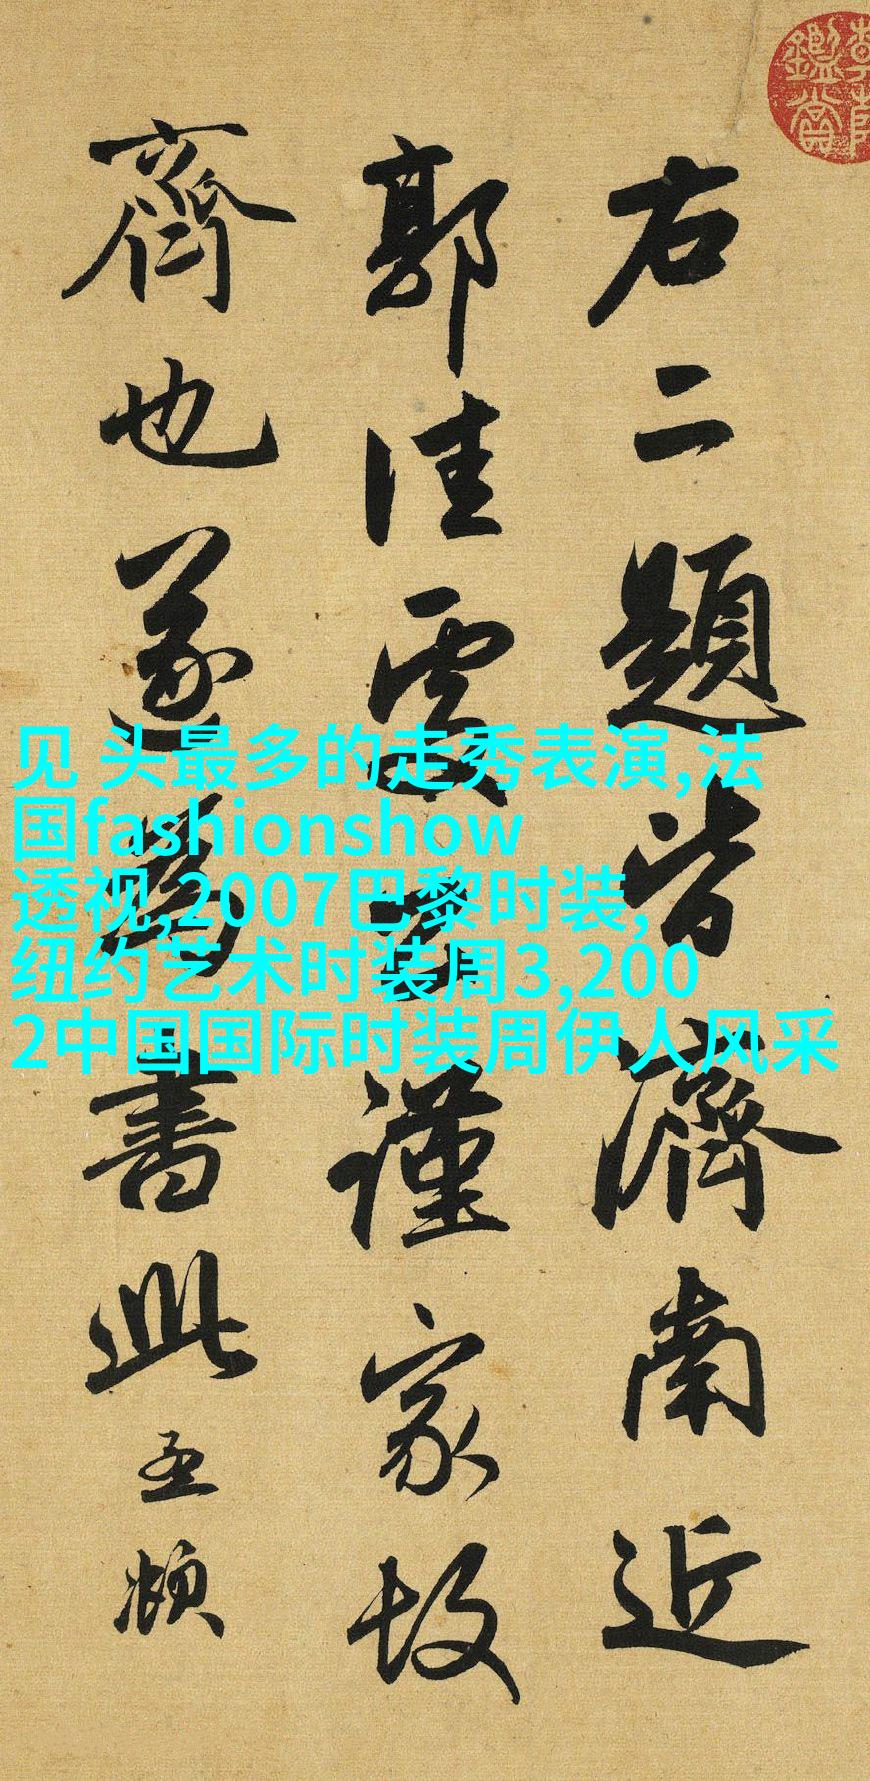 右二題皆濟南近
郭佳處公謹家故
齊也遂爲書此孟頫
見 头最多的走秀表演,法
国fashionshow
透视,2007巴黎时装,
纽约艺术时装周3,200
2中国国际时装周伊人风采